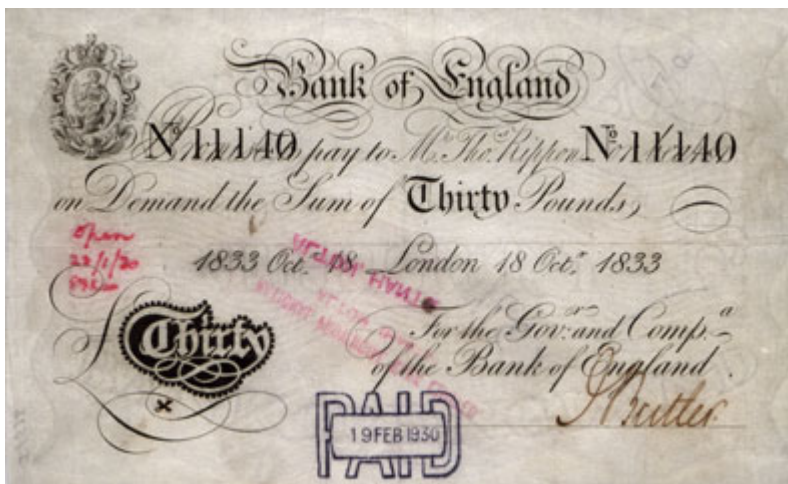 Bank of England
Nº 11140 pay to Mr. Thos. Rippon Nº 11140
on Demand the Sum of Thirty Pounds,
open
22/1/20
1833 Octr. 18 London 18 Octr. 1833
For the Govr. and Compa.
of the Bank of England.
£ Thirty
PAID
19 FEB 1930